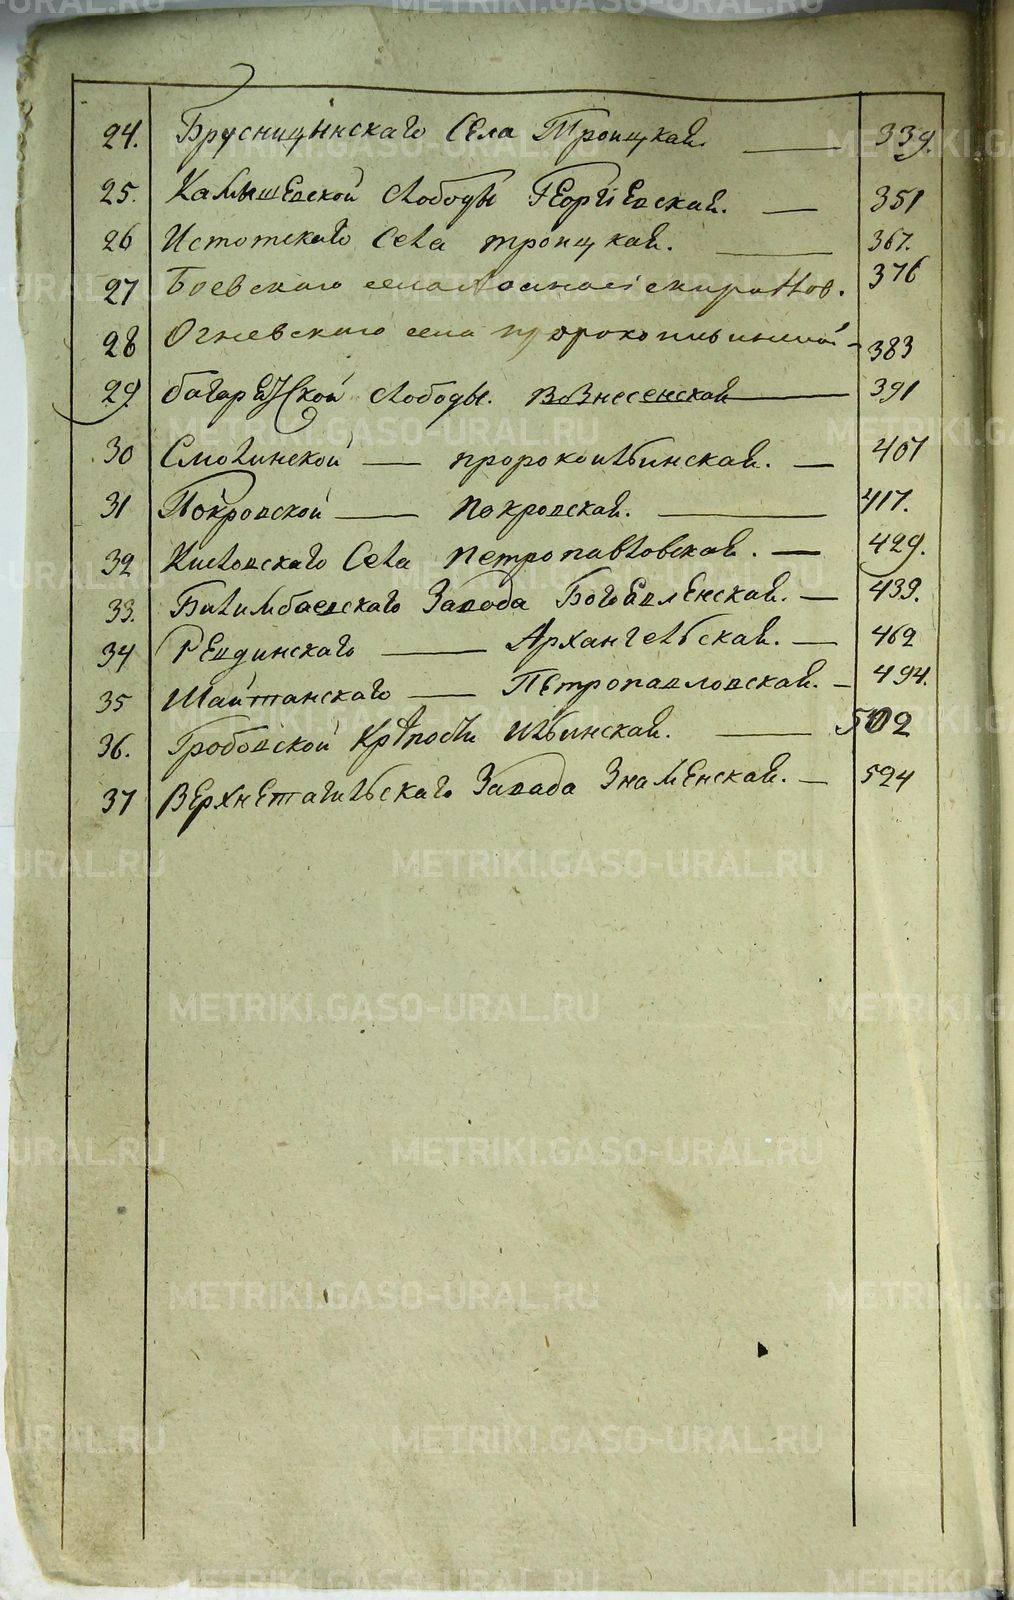 24. Брусницынскаго Села Троицкая. — 339.
25. Камышевской слободы Георгіевская. — 351
26 Истокскаго Села троицкая. — 367.
27 Боевскаго села 376
28 Огневскаго села пророкоильинской — 383
29) багарякской слободы. Вознесенская — 391
30 Смолинской — пророкоильинская. — 407
31 Покровской — покровская. — 417.
32 Кисловскаго Села петропавловская. — 429.
33. Билимбаевскаго Завода Богоявленская. — 439.
34 Ревдинскаго — Архангельская. — 462
35 Шайтанскаго — Петропавловская. — 494.
36. Гробовской Крѣпости Ильинская. — 502
37 Верхнетагильскаго Завада Знаменская. — 524
METRIKI.GASO-URAL.RU